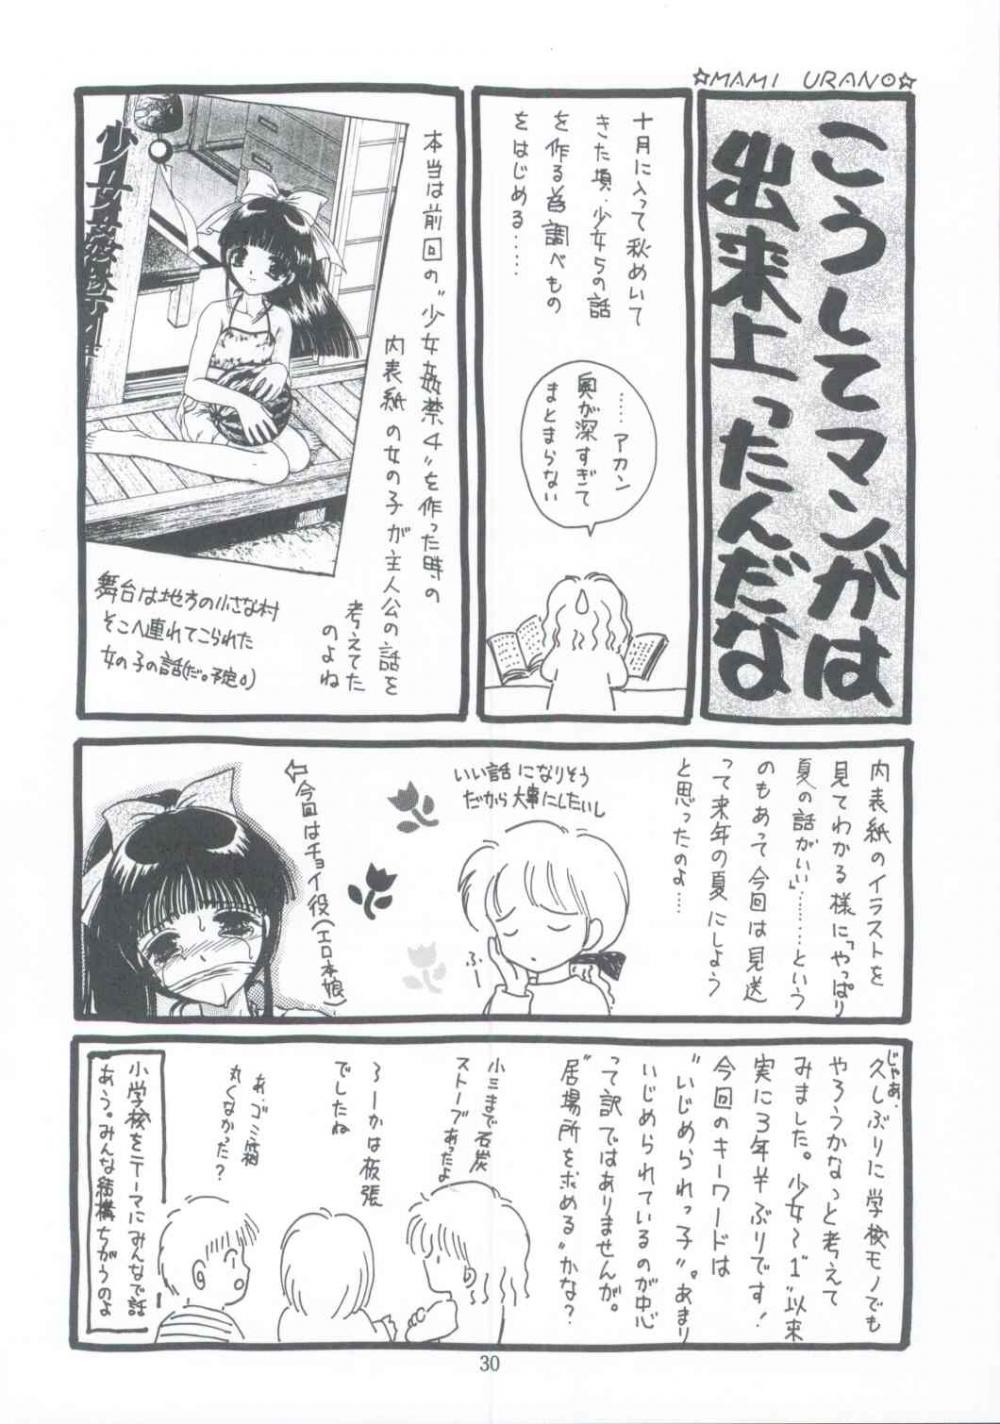 ☆MAMI URANO☆
こうしてマンガは
出来上ったんだな
十月に入って秋めいて
きた頃・少女らの話
を作る為調べもの
をはじめる……
……アカン
奥が深すぎて
まとまらない
本当は前回の"少女姦禁4"を作った時の
内表紙の女の子が主人公の話を
考えてた
のよね
舞台は地方の小さな村
そこへ連れてこられた
女の子の話(だ。予定。)
内表紙のイラストを
見てわかる様に「やっぱり
夏の話がいい」………という
のもあって今回は見送
って来年の夏にしよう
と思ったのよ……
いい話になりそう
だから大事にしたいし
ふー
←今回はチョイ役(エロ本娘)
じゃあ、
久しぶりに学校モノでも
やろうかなっと考えて
みました。少女〜"1"以来
実に3年半ぶりです!
今回のキーワードは
"いじめられっ子"。あまり
いじめられているのが中心
って訳ではありませんが。
"居場所を求める"かな?
小三まで石炭
ストーブあったよ
ろーかは板張
でしたね
あ、ゴミ箱
丸くなかった?
小学校をテーマにみんなで話
あう。みんな結構ちがうのよ
30